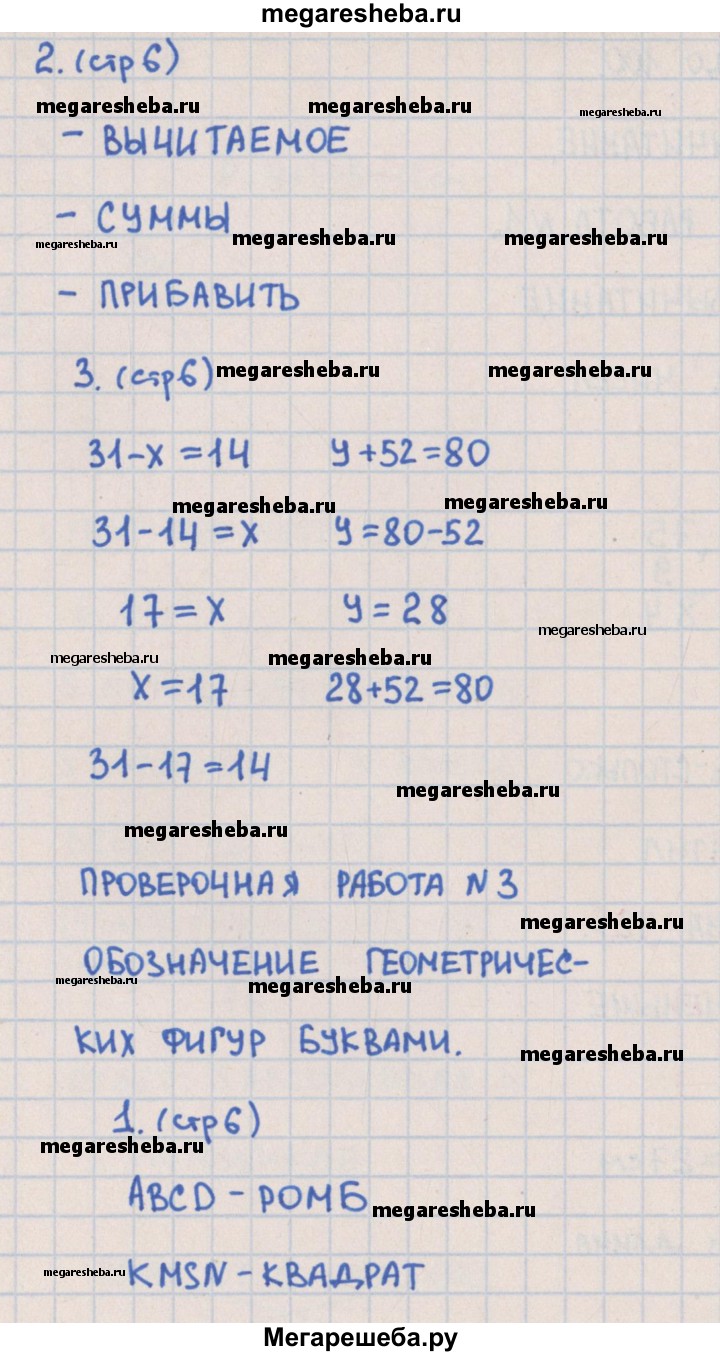 megaresheba.ru
2. (стр 6)
megaresheba.ru megaresheba.ru megaresheba.ru
- ВЫЧИТАЕМОЕ
- СУММЫ
megaresheba.ru megaresheba.ru megaresheba.ru
- ПРИБАВИТЬ
3. (стр 6) megaresheba.ru megaresheba.ru
31-х=14 у+52=80
megaresheba.ru megaresheba.ru
31-14=х у=80-52
17=х у=28
megaresheba.ru megaresheba.ru megaresheba.ru
х=17 28+52=80
31-17=14
megaresheba.ru
megaresheba.ru
ПРОВЕРОЧНАЯ РАБОТА N3
megaresheba.ru
ОБОЗНАЧЕНИЕ ГЕОМЕТРИЧЕС-
megaresheba.ru megaresheba.ru
КИХ ФИГУР БУКВАМИ.
megaresheba.ru
1. (стр 6)
megaresheba.ru
ABCD - РОМБ
megaresheba.ru
megaresheba.ru KMSN - КВАДРАТ
Мегарешеба.ру